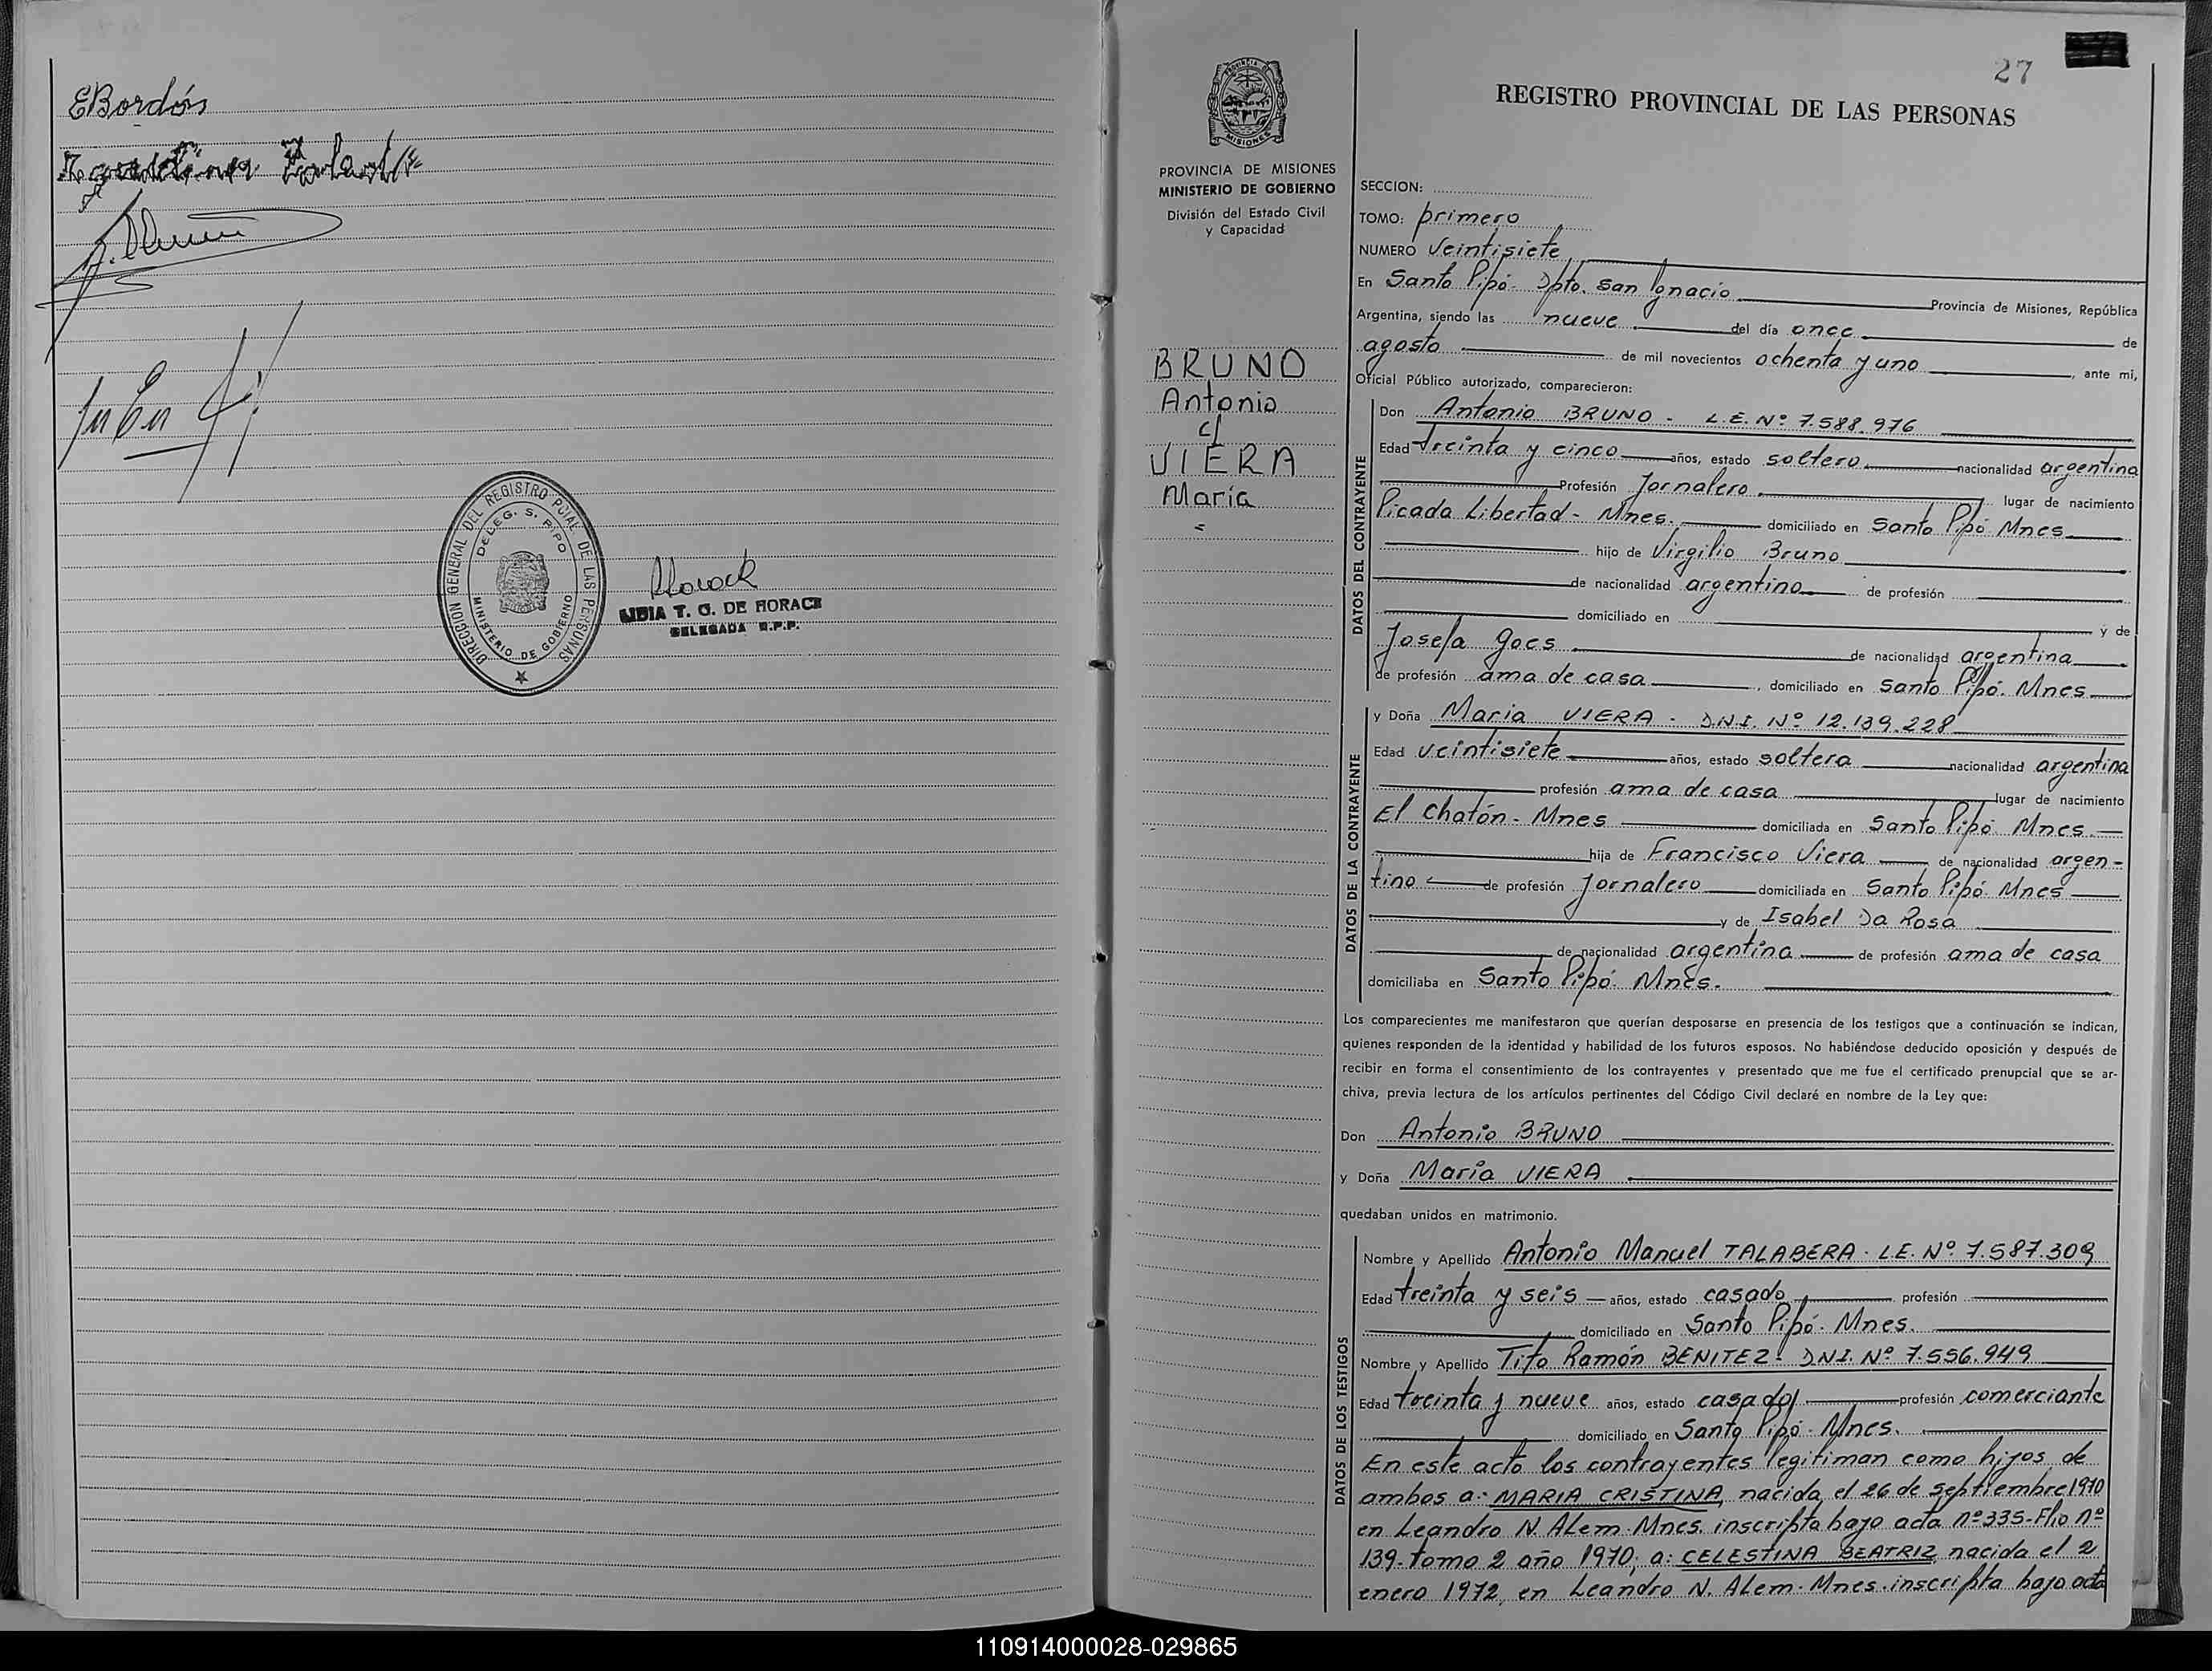 EBordón
REGISTRO PCIAL DE LAS PERSONAS
DIRECCION GENERAL DEL
DELEG. S. PIPO
MINISTERIO DE GOBIERNO
LIDIA T. G. DE HORACK
DELEGADA R.P.P.
27
PROVINCIA DE
MISIONES
REGISTRO PROVINCIAL DE LAS PERSONAS
PROVINCIA DE MISIONES
MINISTERIO DE GOBIERNO
División del Estado Civil
y Capacidad
BRUNO
Antonio
c/
VIERA
María
SECCION:
TOMO: primero
NUMERO veintisiete
En Santo Pipó - Dpto. San Ignacio Provincia de Misiones, República
Argentina, siendo las nueve del día once de
agosto de mil novecientos ochenta y uno, ante mí,
Oficial Público autorizado, comparecieron:
DATOS DEL CONTRAYENTE
Don Antonio BRUNO - L.E. Nº 7.588.976
Edad treinta y cinco años, estado soltero nacionalidad argentina
Profesión Jornalero lugar de nacimiento
Picada Libertad - Mnes. domiciliado en Santo Pipó Mnes
hijo de Virgilio Bruno
de nacionalidad argentino de profesión
domiciliado en y de
Josefa Goes de nacionalidad argentina
de profesión ama de casa, domiciliado en Santo Pipó. Mnes
DATOS DE LA CONTRAYENTE
y Doña Maria VIERA - D.N.I. Nº 12.139.228
Edad veintisiete años, estado soltera nacionalidad argentina
profesión ama de casa lugar de nacimiento
El Chatón - Mnes domiciliada en Santo Pipó Mnes
hija de Francisco Viera de nacionalidad argen-
tino de profesión Jornalero domiciliada en Santo Pipó Mnes
y de Isabel Da Rosa
de nacionalidad argentina de profesión ama de casa
domiciliaba en Santo Pipó. Mnes.
Los comparecientes me manifestaron que querían desposarse en presencia de los testigos que a continuación se indican,
quienes responden de la identidad y habilidad de los futuros esposos. No habiéndose deducido oposición y después de
recibir en forma el consentimiento de los contrayentes y presentado que me fue el certificado prenupcial que se ar-
chiva, previa lectura de los artículos pertinentes del Código Civil declaré en nombre de la Ley que:
Don Antonio BRUNO
y Doña María VIERA
quedaban unidos en matrimonio.
DATOS DE LOS TESTIGOS
Nombre y Apellido Antonio Manuel TALABERA - L.E. Nº 7.587.309
Edad treinta y seis años, estado casado profesión
domiciliado en Santo Pipó. Mnes.
Nombre y Apellido Tito Ramón BENITEZ - D.N.I. Nº 7.556.949
Edad treinta y nueve años, estado casado profesión comerciante
domiciliado en Santo Pipó - Mnes.
En este acto los contrayentes legitiman como hijos de
ambos a: MARIA CRISTINA, nacida el 26 de septiembre 1970
en Leandro N. Alem - Mnes. inscripta bajo acta nº 335 - Flio nº
139 - tomo 2 año 1970; a: CELESTINA BEATRIZ nacida el 2
enero 1972, en Leandro N. Alem - Mnes. inscripta bajo acta
110914000028-029865